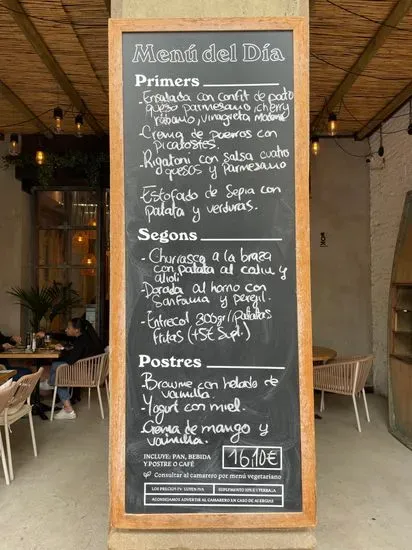 Menú del Día
Primers
- Ensalada con confit de pato
queso parmesano, cherry
rábano, vinagreta
- Crema de puerros con
Picatostes.
- Rigatoni con salsa cuatro
quesos y parmesano
- Estofado de Sepia con
patata y verduras.
Segons
- Churrasco a la braza
con patata al caliu y
alioli
- Dorada al horno con
Sanfaina y perejil.
- Entrecot 300gr/Patatas
fritas (+5€ supl.)
Postres
- Brownie con helado de
vainilla.
- Yogurt con miel.
- Crema de mango y
vainilla.
INCLUYE: PAN, BEBIDA
Y POSTRE O CAFÉ
16,10€
Consultar al camarero por menú vegetariano
LOS PRECIOS
SUPLEMENTO 10% TERRAZA
ACONSEJAMOS ADVERTIR AL CAMARERO EN CASO DE ALERGIAS